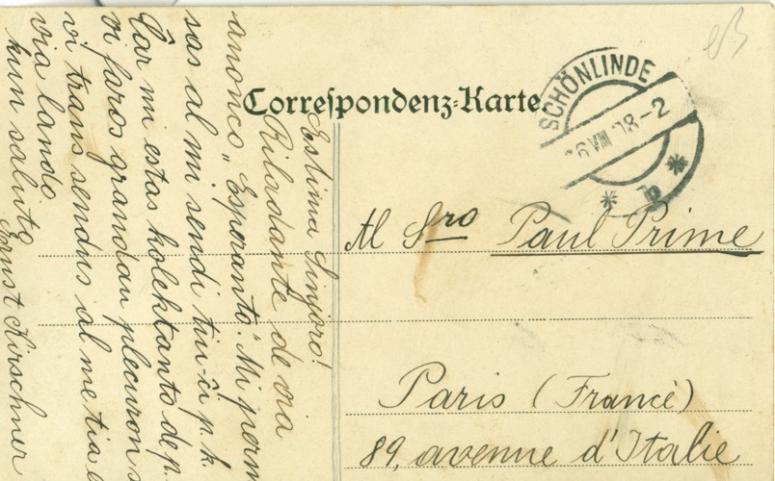 Correspondenz-Karte.
SCHÖNLINDE
VIII 08-2
b
Al Sro Paul Prime
Paris (France)
89, avenue d'Italie
Estima Sinjoro!
Rilatante de via
anonco „Esperanto" Mi perm
sas al mi sendi tiu-ĉi p. k.
Ĉar mi estas kolektanto de p.
vi faros grandan plezuron
vi trans sendus al me tia
via lando
kun saluto
Ernst Kirschner